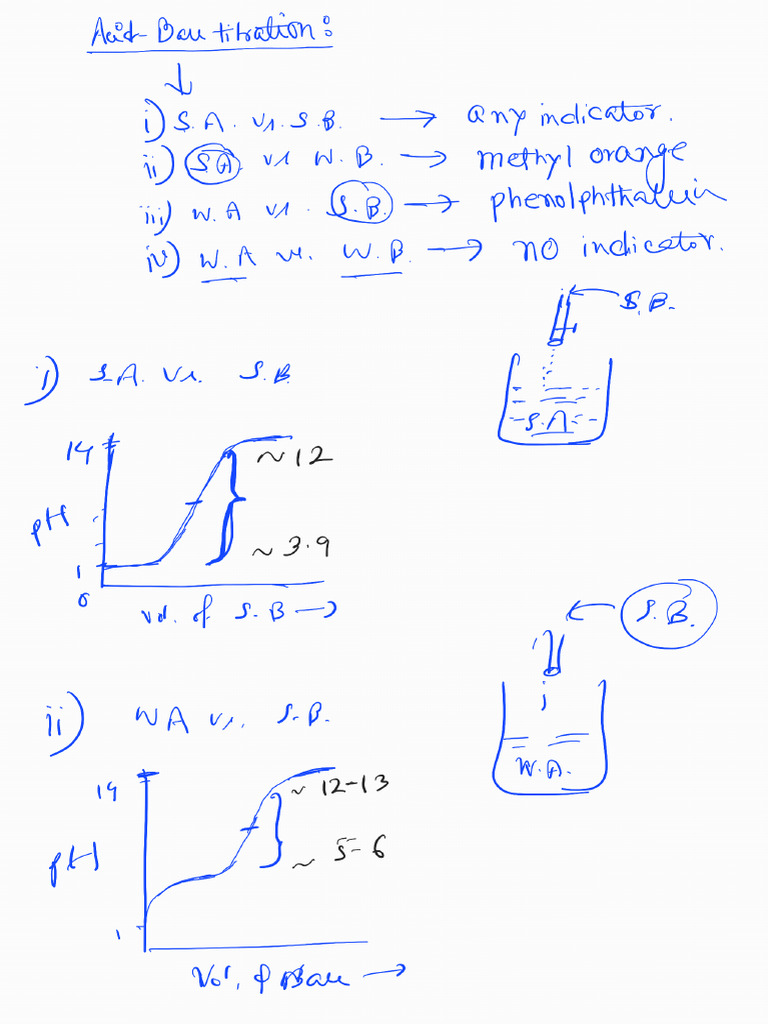 Acid-Base titration:
i) S.A. vs. S.B. → any indicator.
ii) S.A vs W.B. → methyl orange
iii) W.A vs. S.B. → phenolphthalein
iv) W.A vs. W.B. → no indicator.
S.B.
S.A
i) S.A. vs. S.B.
14
~12
pH
~3.9
1
0
Vol. of S.B →
S.B.
W.A.
ii) WA vs. S.B.
14
~ 12-13
pH
~ 5-6
1
Vol. of Base →